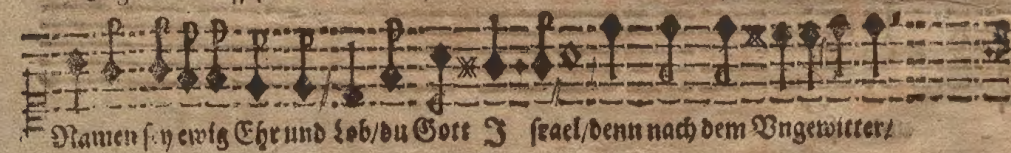 Namen sey ewig Ehr und Lob/du Gott J srael/denn nach dem Vngewitter/